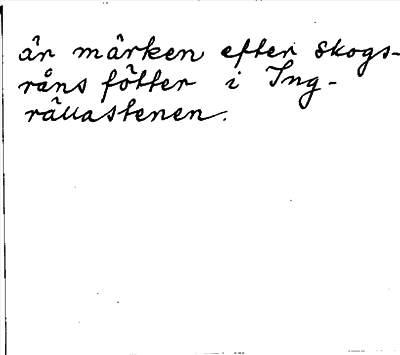 är märken efter skogs-
råns fötter i Ing-
rällastenen.